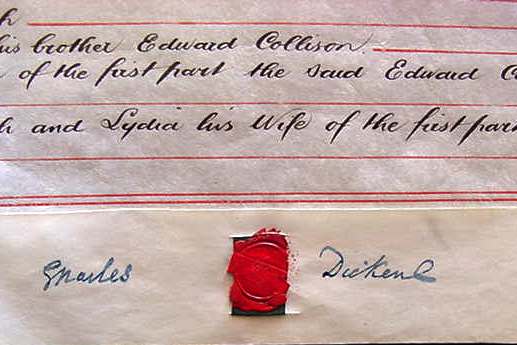 h
his brother Edward Collison.
of the first part the said Edward C
h and Lydia his Wife of the first part
Charles Dickens